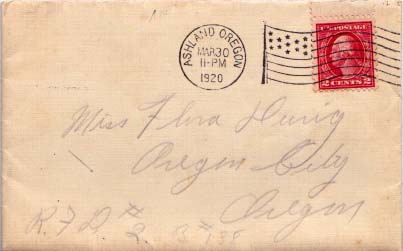 ASHLAND OREGON
MAR 30
11-PM
1920
U.S. POSTAGE
2 CENTS 2
Miss Flora
Oregon City
Oregon
R.F.D. #